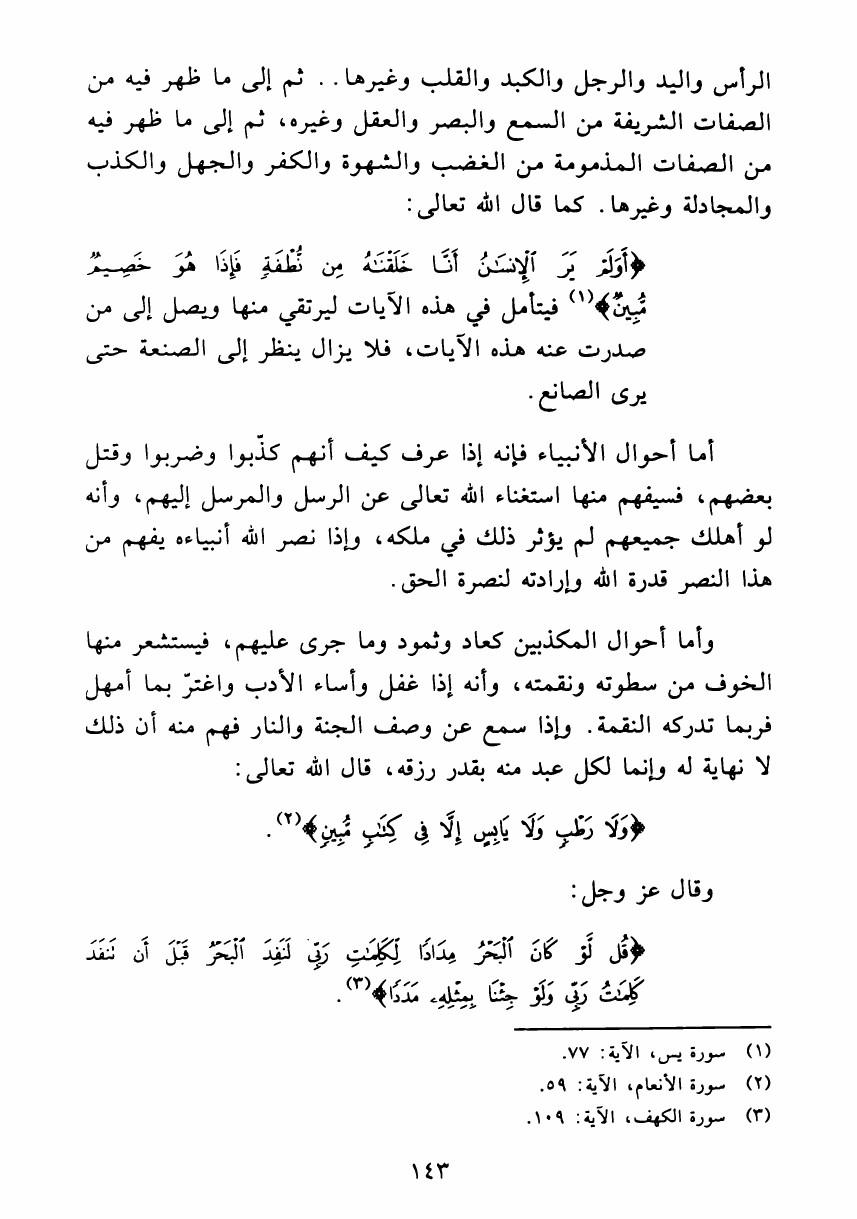 الرأس واليد والرجل والكبد والقلب وغيرها. . ثم إلى ما ظهر فيه من
الصفات الشريفة من السمع والبصر والعقل وغيره، ثم إلى ما ظهر فيه
من الصفات المذمومة من الغضب والشهوة والكفر والجهل والكذب
والمجادلة وغيرها. كما قال الله تعالى:
﴿أَوَلَمْ يَرَ ٱلْإِنسَٰنُ أَنَّا خَلَقْنَٰهُ مِن نُّطْفَةٍ فَإِذَا هُوَ خَصِيمٌ
مُّبِينٌ﴾(١) فيتأمل في هذه الآيات ليرتقي منها ويصل إلى من
صدرت عنه هذه الآيات، فلا يزال ينظر إلى الصنعة حتى
يرى الصانع.
أما أحوال الأنبياء فإنه إذا عرف كيف أنهم كذّبوا وضربوا وقتل
بعضهم، فسيفهم منها استغناء الله تعالى عن الرسل والمرسل إليهم، وأنه
لو أهلك جميعهم لم يؤثر ذلك في ملكه، وإذا نصر الله أنبياءه يفهم من
هذا النصر قدرة الله وإرادته لنصرة الحق.
وأما أحوال المكذبين كعاد وثمود وما جرى عليهم، فيستشعر منها
الخوف من سطوته ونقمته، وأنه إذا غفل وأساء الأدب واغترّ بما أمهل
فربما تدركه النقمة. وإذا سمع عن وصف الجنة والنار فهم منه أن ذلك
لا نهاية له وإنما لكل عبد منه بقدر رزقه، قال الله تعالى:
﴿وَلَا رَطْبٍ وَلَا يَابِسٍ إِلَّا فِى كِتَٰبٍ مُّبِينٍ﴾(٢).
وقال عز وجل:
﴿قُل لَّوْ كَانَ ٱلْبَحْرُ مِدَادًا لِّكَلِمَٰتِ رَبِّى لَنَفِدَ ٱلْبَحْرُ قَبْلَ أَن تَنفَدَ
كَلِمَٰتُ رَبِّى وَلَوْ جِئْنَا بِمِثْلِهِۦ مَدَدًا﴾(٣).
(١) سورة يس، الآية: ٧٧.
(٢) سورة الأنعام، الآية: ٥٩.
(٣) سورة الكهف، الآية: ١٠٩.
١٤٣